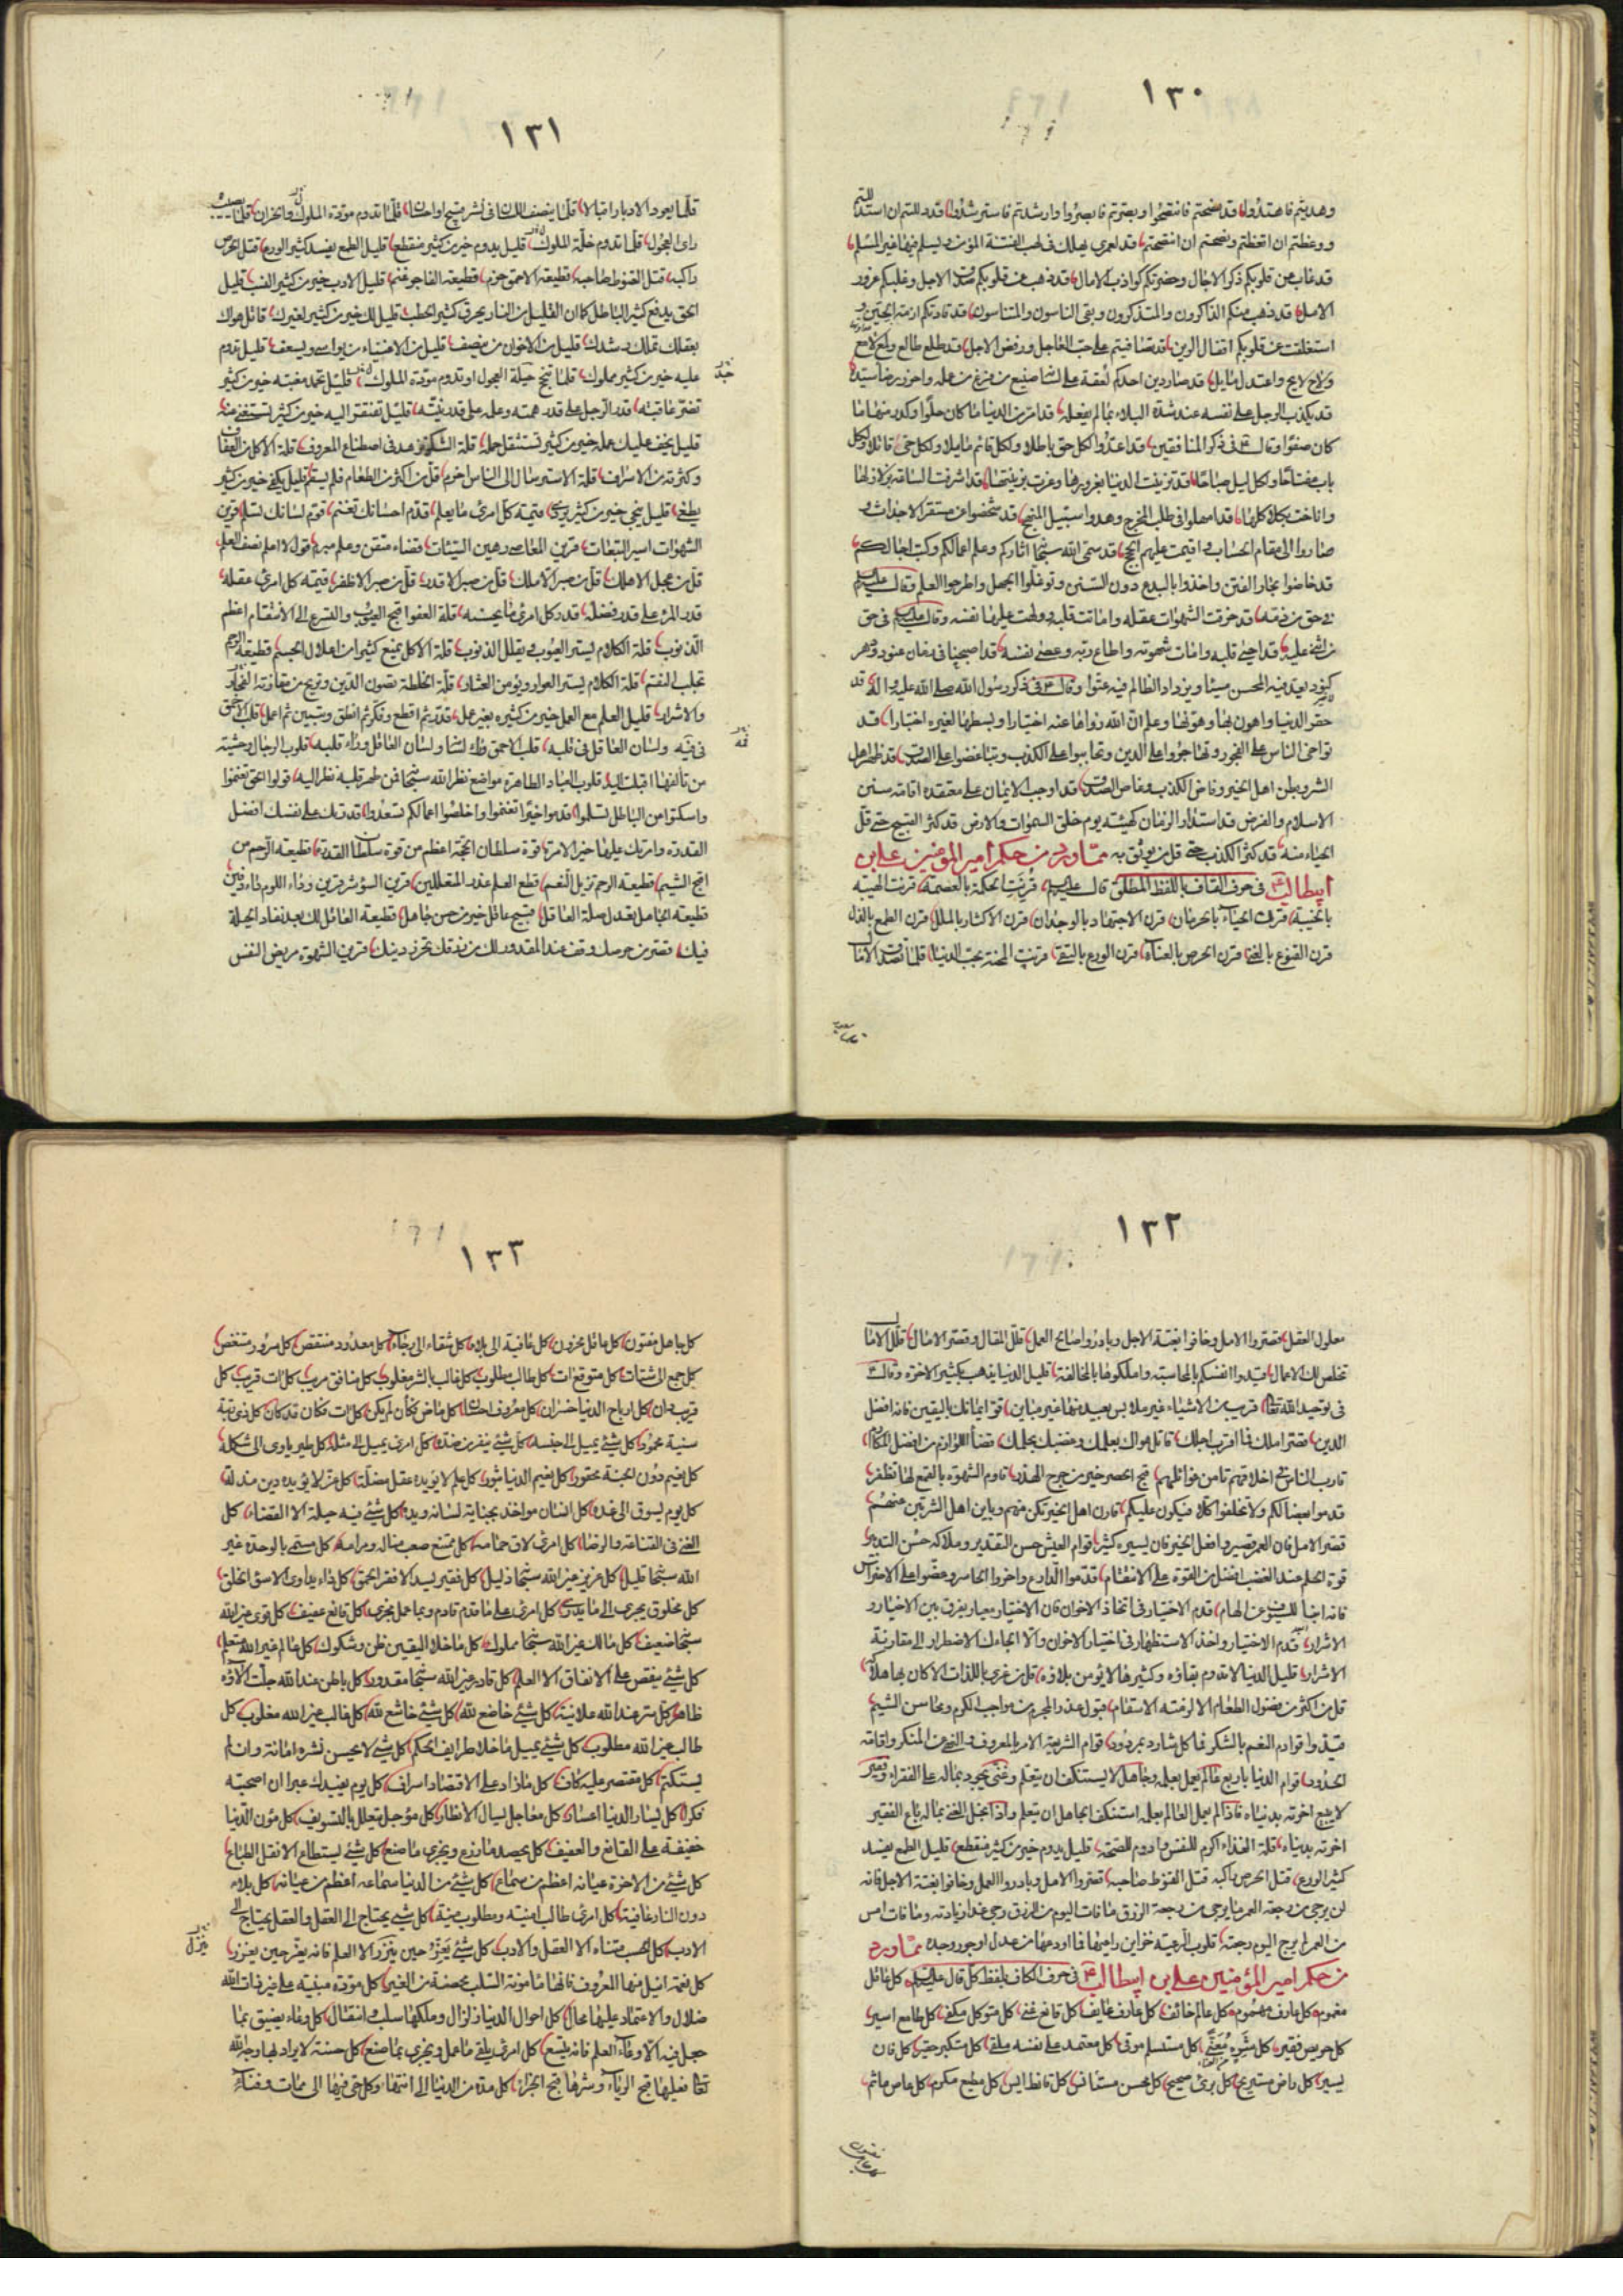 ١٣٠
وهديتم فاهتدوا قد نصحتم فانتصحوا وبصرتم فابصروا وارشدتم فاسترشدوا قد دللتم ان استدللتم
ووعظتم ان اتعظتم ونصحتم ان انتصحتم قد لعمري يهلك في لهب الفتنة المؤمن ويسلم فيها غير المسلم
قد غاب عن قلوبكم ذكر الاجال وحضرتكم كواذب الامال قد ذهب عن قلوبكم صدق الاجل وغلبكم غرور
الامل قد ذهب منكم الذاكرون والمتذكرون وبقى الناسون والمتناسون قد قادتكم ازمة الحين و
استغلقت على قلوبكم اقفال الرين قد تصافيتم على حب العاجل ورفض الاجل قد طلع طالع ولمع لامع
ولاح لايح واعتدل مايل قد صار دين احدكم لعقة على لسانه صنيع من فرغ من عمله واحرز رضا سيده
قد يكذب الرجل على نفسه عند شدة البلاء بما لم يفعله قد امر من الدنيا ما كان حلوا وكدر منها ما
كان صفوا وقال في ذكر المنافقين قد اعدوا لكل حق باطلا ولكل قائم مايلا ولكل حي قاتلا ولكل
باب مفتاحا ولكل ليل صباحا قد تزينت الدنيا بغرورها وغرت بزينتها قد اشرفت الساعة بزلازلها
واناخت بكلاكلها قد امهلوا في طلب المخرج وهدوا سبيل المنهج قد شخصوا من مستقر الاجداث و
صاروا الى مقام الحساب واقيمت عليهم الحجج قد سمى الله سبحانه اثاركم وعلم اعمالكم وكتب اجالكم
قد خاضوا بحار الفتن واخذوا بالبدع دون السنن وتوغلوا الجهل واطرحوا العلم وقال عليه السلم
في حق من ذمه قد خرقت الشهوات عقله واماتت قلبه وولهت عليها نفسه وقال عليه السلم في حق
من اثنى عليه قد احيى قلبه وامات شهوته واطاع ربه وعصى نفسه قد اصبحنا في زمان عنود ودهر
كنود يعد فيه المحسن مسيئا ويزداد الظالم فيه عتوا وقال في ذكر رسول الله صلى الله عليه واله قد
حقر الدنيا واهون بها وهونها وعلم ان الله زواها عنه اختيارا وبسطها لغيره اختبارا قد
تواخى الناس على الفجور وتهاجروا على الدين وتحابوا على الكذب وتباغضوا على الصدق قد ظهر اهل
الشر وبطن اهل الخير وفاض الكذب وغاض الصدق قد اوجب الايمان على معتقده اقامة سنن
الاسلام والفرض قد استدار الزمان كهيئته يوم خلق السموات والارض قد كثر القبيح حتى قل
الحياء منه قد كثر الكذب حتى قل من يوثق به مما ورد من حكم امير المؤمنين علي بن
ابيطالب في حرف القاف باللفظ المطلق قال عليه السلم قرنت الحكمة بالعصمة قرنت الهيبة
بالخيبة قرن الحياء بالحرمان قرن الاجتهاد بالوجدان قرن الاكثار بالملل قرن الطمع بالذل
قرن القنوع بالغنى قرن الحرص بالعناء قرن الورع بالتقى قرنت المحنة بحب الدنيا قلما تصدق الامال
١٣١
قلما يعود الادبار اقبالا قلما ينصف اللسان في نشر قبيح او احسان قلما تدوم مودة الملوك والخوان قلما يصيب
راى العجول قلما تدوم خلة الملوك قليل يدوم خير من كثير منقطع قليل الطمع يفسد كثير الورع قتل الحرص
راكبه قتل القنوط صاحبه قطيعة الاحمق حزم قطيعة الفاجر غنم قليل الادب خير من كثير النسب قليل
الحق يدفع كثير الباطل كما ان القليل من النار يحرق كثير الحطب قليل لك خير من كثير لغيرك قاتل هواك
بعقلك تملك رشدك قليل من الاخوان من ينصف قليل من الاغنياء من يواسى ويسعف قليل تدوم
عليه خير من كثير مملوك قلما تنجح حيلة العجول او تدوم مودة الملوك قليل تحمد مغبته خير من كثير
تضر عاقبته قدر الرجل على قدر همته وعمله على قدر نيته قليل تفتقر اليه خير من كثير تستغنى عنه
قليل يخف عليك عمله خير من كثير تستثقل حمله قلة الشكر تزهد في اصطناع المعروف قلة الاكل من العفاف
وكثرته من الاسراف قلة الاسترسال الى الناس احزم قل من اكثر من الطعام فلم يسقم قليل يكفى خير من كثير
يطغى قليل ينجى خير من كثير يردى قيمة كل امرئ ما يعلم قدم احسانك تغنم قوم لسانك تسلم قرين
الشهوات اسير التبعات قرين المعاصى رهين السيئات قضاء متقن وعلم مبرم قول لا اعلم نصف العلم
قل من عجل الا هلك قل من صبر الا ملك قل من صبر الا قدر قل من صبر الا ظفر قيمة كل امرئ عقله
قدر المرء على قدر فضله قدر كل امرئ ما يحسنه قلة العفو اقبح العيوب والتسرع الى الانتقام اعظم
الذنوب قلة الكلام يستر العيوب ويقلل الذنوب قلة الاكل يمنع كثيرا من اعلال الجسم قطيعة الرحم
تجلب النقم قلة الكلام يستر العوار ويؤمن العثار قلة الخلطة تصون الدين وتريح من مقارنة الفجار
والاشرار قليل العلم مع العمل خير من كثيره بغير عمل قدر ثم اقطع وفكر ثم انطق وتبين ثم اعمل قلب الاحمق
في فيه ولسان العاقل في قلبه قلب الاحمق وراء لسانه ولسان العاقل وراء قلبه قلوب الرجال وحشية
من تالفها اقبلت اليه قلوب العباد الطاهرة مواضع نظر الله سبحانه فمن طهر قلبه نظر اليه قولوا الحق تغنموا
واسكتوا من الباطل تسلموا قدموا خيرا تغنموا واخلصوا اعمالكم تسعدوا قدرتك على نفسك افضل
القدرة وامرتك عليها خير الامرة قوة سلطان الحجة اعظم من قوة سلطان القدرة قطيعة الرحم من
اقبح الشيم قطيعة الرحم تزيل النعم قطع العلم عذر المتعللين قرين السوء شر قرين وداء اللوم داء دفين
قطيعة الجاهل تعدل صلة العاقل قبيح عاقل خير من حسن جاهل قطيعة العاقل لك بعد نفاد الحيلة
فيك قصر من حرصك وقف عند المقدور لك من رزقك تحرز دينك قرين الشهوة مريض النفس
١٣٢
معلول العقل قصروا الامل وخافوا بغتة الاجل وبادروا صالح العمل قلل المقال وقصر الامال قلل الامال
تخلص لك الاعمال قيدوا انفسكم بالمحاسبة واملكوها بالمخالفة قليل الدنيا يذهب بكثير الاخرة وقال
في توحيد الله تعالى قريب من الاشياء غير ملابس بعيد منها غير مباين قو ايمانك باليقين فانه افضل
الدين قصر املك فما اقرب اجلك قاتل هواك بعلمك وغضبك بحلمك قضاء اللوازم من افضل المكارم
قارب الناس في اخلاقهم تامن غوائلهم قبح الحصر خير من جرح الهذر قاوم الشهوة بالقمع لها تظفر
قدموا بعضا لكم ولا تخلفوا كلا فيكون عليكم قارن اهل الخير تكن منهم وباين اهل الشر تبن عنهم
قصر الامل فان العمر قصير وافعل الخير فان يسيره كثير قوام العيش حسن التقدير وملاكه حسن التدبير
قوة الحلم عند الغضب افضل من القوة على الانتقام قدموا الدارع واخروا الحاسر وعضوا على الاضراس
فانه انبا للسيوف عن الهام قدم الاختيار في اتخاذ الاخوان فان الاختيار معيار يفرق بين الاخيار و
الاشرار قدم الاختيار واخذ الاستظهار في اختيار الاخوان والا الجاءك الاضطرار الى مقارنة
الاشرار قليل الدنيا لا تدوم بقاؤه وكثيرها لا يؤمن بلاؤه قل من غرى باللذات الا كان بها هلاكه
قل من اكثر من فضول الطعام الا لزمته الاسقام قبول عذر المجرم من مواجب الكرم ومحاسن الشيم
قيدوا قوادم النعم بالشكر فما كل شارد بمردود قوام الشريعة الامر بالمعروف والنهى عن المنكر واقامة
الحدود قوام الدنيا باربع عالم يعمل بعلمه وجاهل لا يستنكف ان يتعلم وغنى يجود بماله على الفقراء وفقير
لا يبيع اخرته بدنياه فاذا لم يعمل العالم بعلمه استنكف الجاهل ان يتعلم واذا بخل الغنى بماله باع الفقير
اخرته بدنياه قلة الغذاء اكرم للنفس وادوم للصحة قليل يدوم خير من كثير منقطع قليل الطمع يفسد
كثير الورع قتل الحرص راكبه قتل القنوط صاحبه قصروا الامل وبادروا العمل وخافوا بغتة الاجل فانه
لن يرجى من رجعة العمر ما يرجى من رجعة الرزق ما فات اليوم من الرزق رجى غدا زيادته وما فات امس
من العمر لم يرج اليوم رجعته قلوب الرعية خزاين راعيها فما اودعها من عدل او جور وجده مما ورد
من حكم امير المؤمنين علي بن ابيطالب في حرف الكاف بلفظ كل قال عليه السلم كل عاقل
مغموم كل عارف مهموم كل عالم خائف كل عارف عايف كل قانع غنى كل متوكل مكفى كل طامع اسير
كل حريص فقير كل شره مُعَنّى كل مستسلم موقى كل معتمد على نفسه ملقى كل متكبر حقير كل فان
يسير كل راض مستريح كل برئ صحيح كل محسن مستانس كل قانط ايس كل مطيع مكرم كل عاص ماثم
١٣٣
كل جاهل مفتون كل عاقل محزون كل عافية الى بلاء كل شقاء الى رخاء كل معدود منتقص كل سرور متنغص
كل جمع الى شتات كل متوقع ات كل طالب مطلوب كل غالب بالشر مغلوب كل منافق مريب كل ات قريب كل
قريب دان كل ارباح الدنيا خسران كل معروف احسان كل ماض فكأن لم يكن كل ات فكان قد كان كل ذى رتبة
سنية محسود كل شئ يميل الى جنسه كل شئ ينفر من ضده كل امرئ يميل الى مثله كل طير ياوى الى شكله
كل نعيم دون الجنة محقور كل نعيم الدنيا ثبور كل علم لا يؤيده عقل مضلة كل عز لا يؤيده دين مذلة
كل يوم يسوق الى غده كل انسان مواخذ بجناية لسانه ويده كل شئ فيه حيلة الا القضاء كل
الغنى في القناعة والرضا كل امرئ لاق حمامه كل ممتنع صعب مناله ومرامه كل مسمى بالوحدة غير
الله سبحانه قليل كل عزيز غير الله سبحانه ذليل كل فقير يسد الا فقر الحمق كل داء يداوى الا سوء الخلق
كل مخلوق يجرى الى ما لا يدرى كل امرئ على ما قدم قادم وبما عمل يجزى كل قانع عفيف كل قوى غير الله
سبحانه ضعيف كل مالك غير الله سبحانه مملوك كل ما خلا اليقين ظن وشكوك كل عالم غير الله متعلم
كل شئ ينقص على الانفاق الا العلم كل قادر غير الله سبحانه مقدور كل باطن عند الله جلت آلاؤه
ظاهر كل سر عند الله علانية كل شئ خاضع لله كل شئ خاشع لله كل غالب غير الله مغلوب كل
طالب غير الله مطلوب كل شئ يميل ما خلا طرايف الحكم كل شئ لا يحسن نشره امانة وان لم
يستكتم كل مقتصر عليه كاف كل ما زاد على الاقتصاد اسراف كل يوم يفيدك عبرا ان اصحبته
فكرا كل يسار الدنيا اعسار كل معاجل يسال الانظار كل مؤجل يتعلل بالتسويف كل مؤن الدنيا
خفيفة على القانع والعفيف كل يحصد ما زرع ويجزى ما صنع كل شئ يستطاع الا نقل الطباع
كل شئ من الاخرة عيانه اعظم من سماعه كل شئ من الدنيا سماعه اعظم من عيانه كل بلاء
دون النار عافية كل امرئ طالب امنيته ومطلوب منيته كل شئ يحتاج الى العقل والعقل يحتاج الى
الادب كل الحسب متناه الا العقل والادب كل شئ يعز حين ينزر الا العلم فانه يعز حين يغزر
كل نعمة انيل منها المعروف فانها مامونة السلب محصنة من الغير كل مودة مبنية على غير ذات الله
ضلال والاعتماد عليها محال كل احوال الدنيا زلزال وملكها سلب وانتقال كل وعاء يضيق بما
جعل فيه الا وعاء العلم فانه يتسع كل امرئ يلقى ما عمل ويجزى بما صنع كل حسنة لا يراد بها وجه الله
تعالى فعليها قبح الرياء وثمرها قبح الجزاء كل مدة من الدنيا الى انتهاء وكل حي فيها الى ممات وفناء